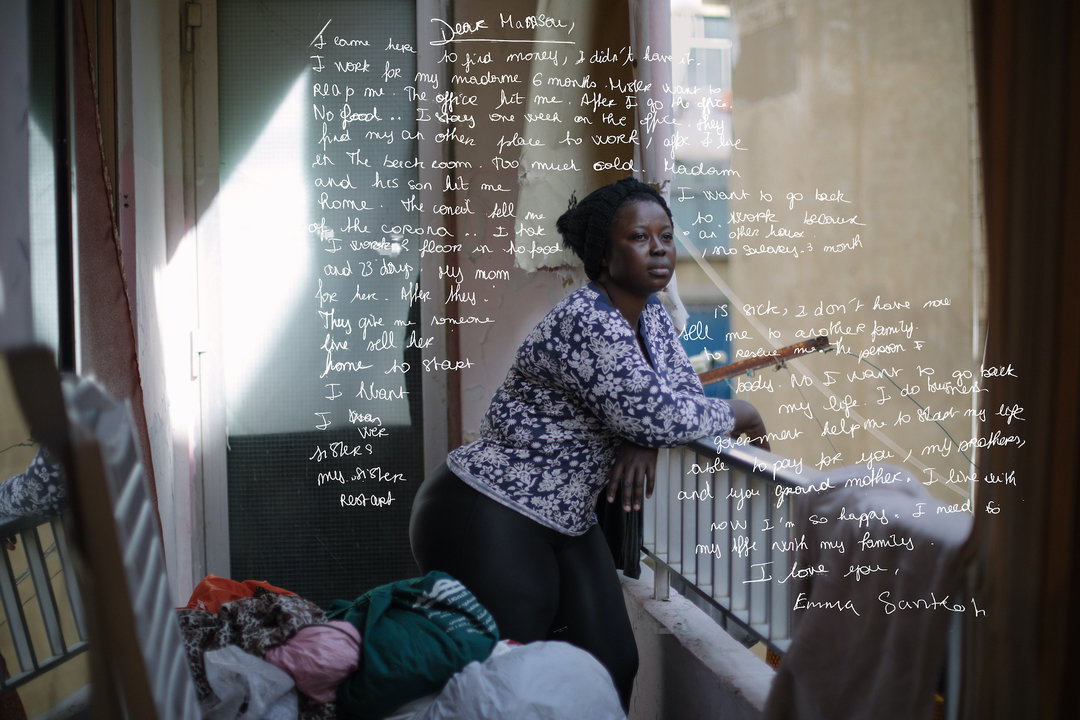 Dear Mansou,
I came here to find money, I didn't have it.
I work for my madame 6 months. Mister want to
reap me. The office hit me. After I go the office.
No food.. I stay one week on the office. they
find my an other place to work, after I live
in the back room. Too much cold. Madam
and his son hit me I want to go back
home. The consil tell me to work because
of the corona.. I tok an other house.
I work 8 floor in no food, no salary. 3 month
and 23 days. My mom is sick, I don't have now
for her. After they sell me to another family.
They give me someone to rescue me. the person I
live sell her body. No I want to go back
home to start my life. I do business
I want government help me to start my life
I was able to pay for you, my brothers,
sisters and you ground mother. I live with
my sister now I'm so happy. I need to
restart my life with my family.
I love you,
Emma